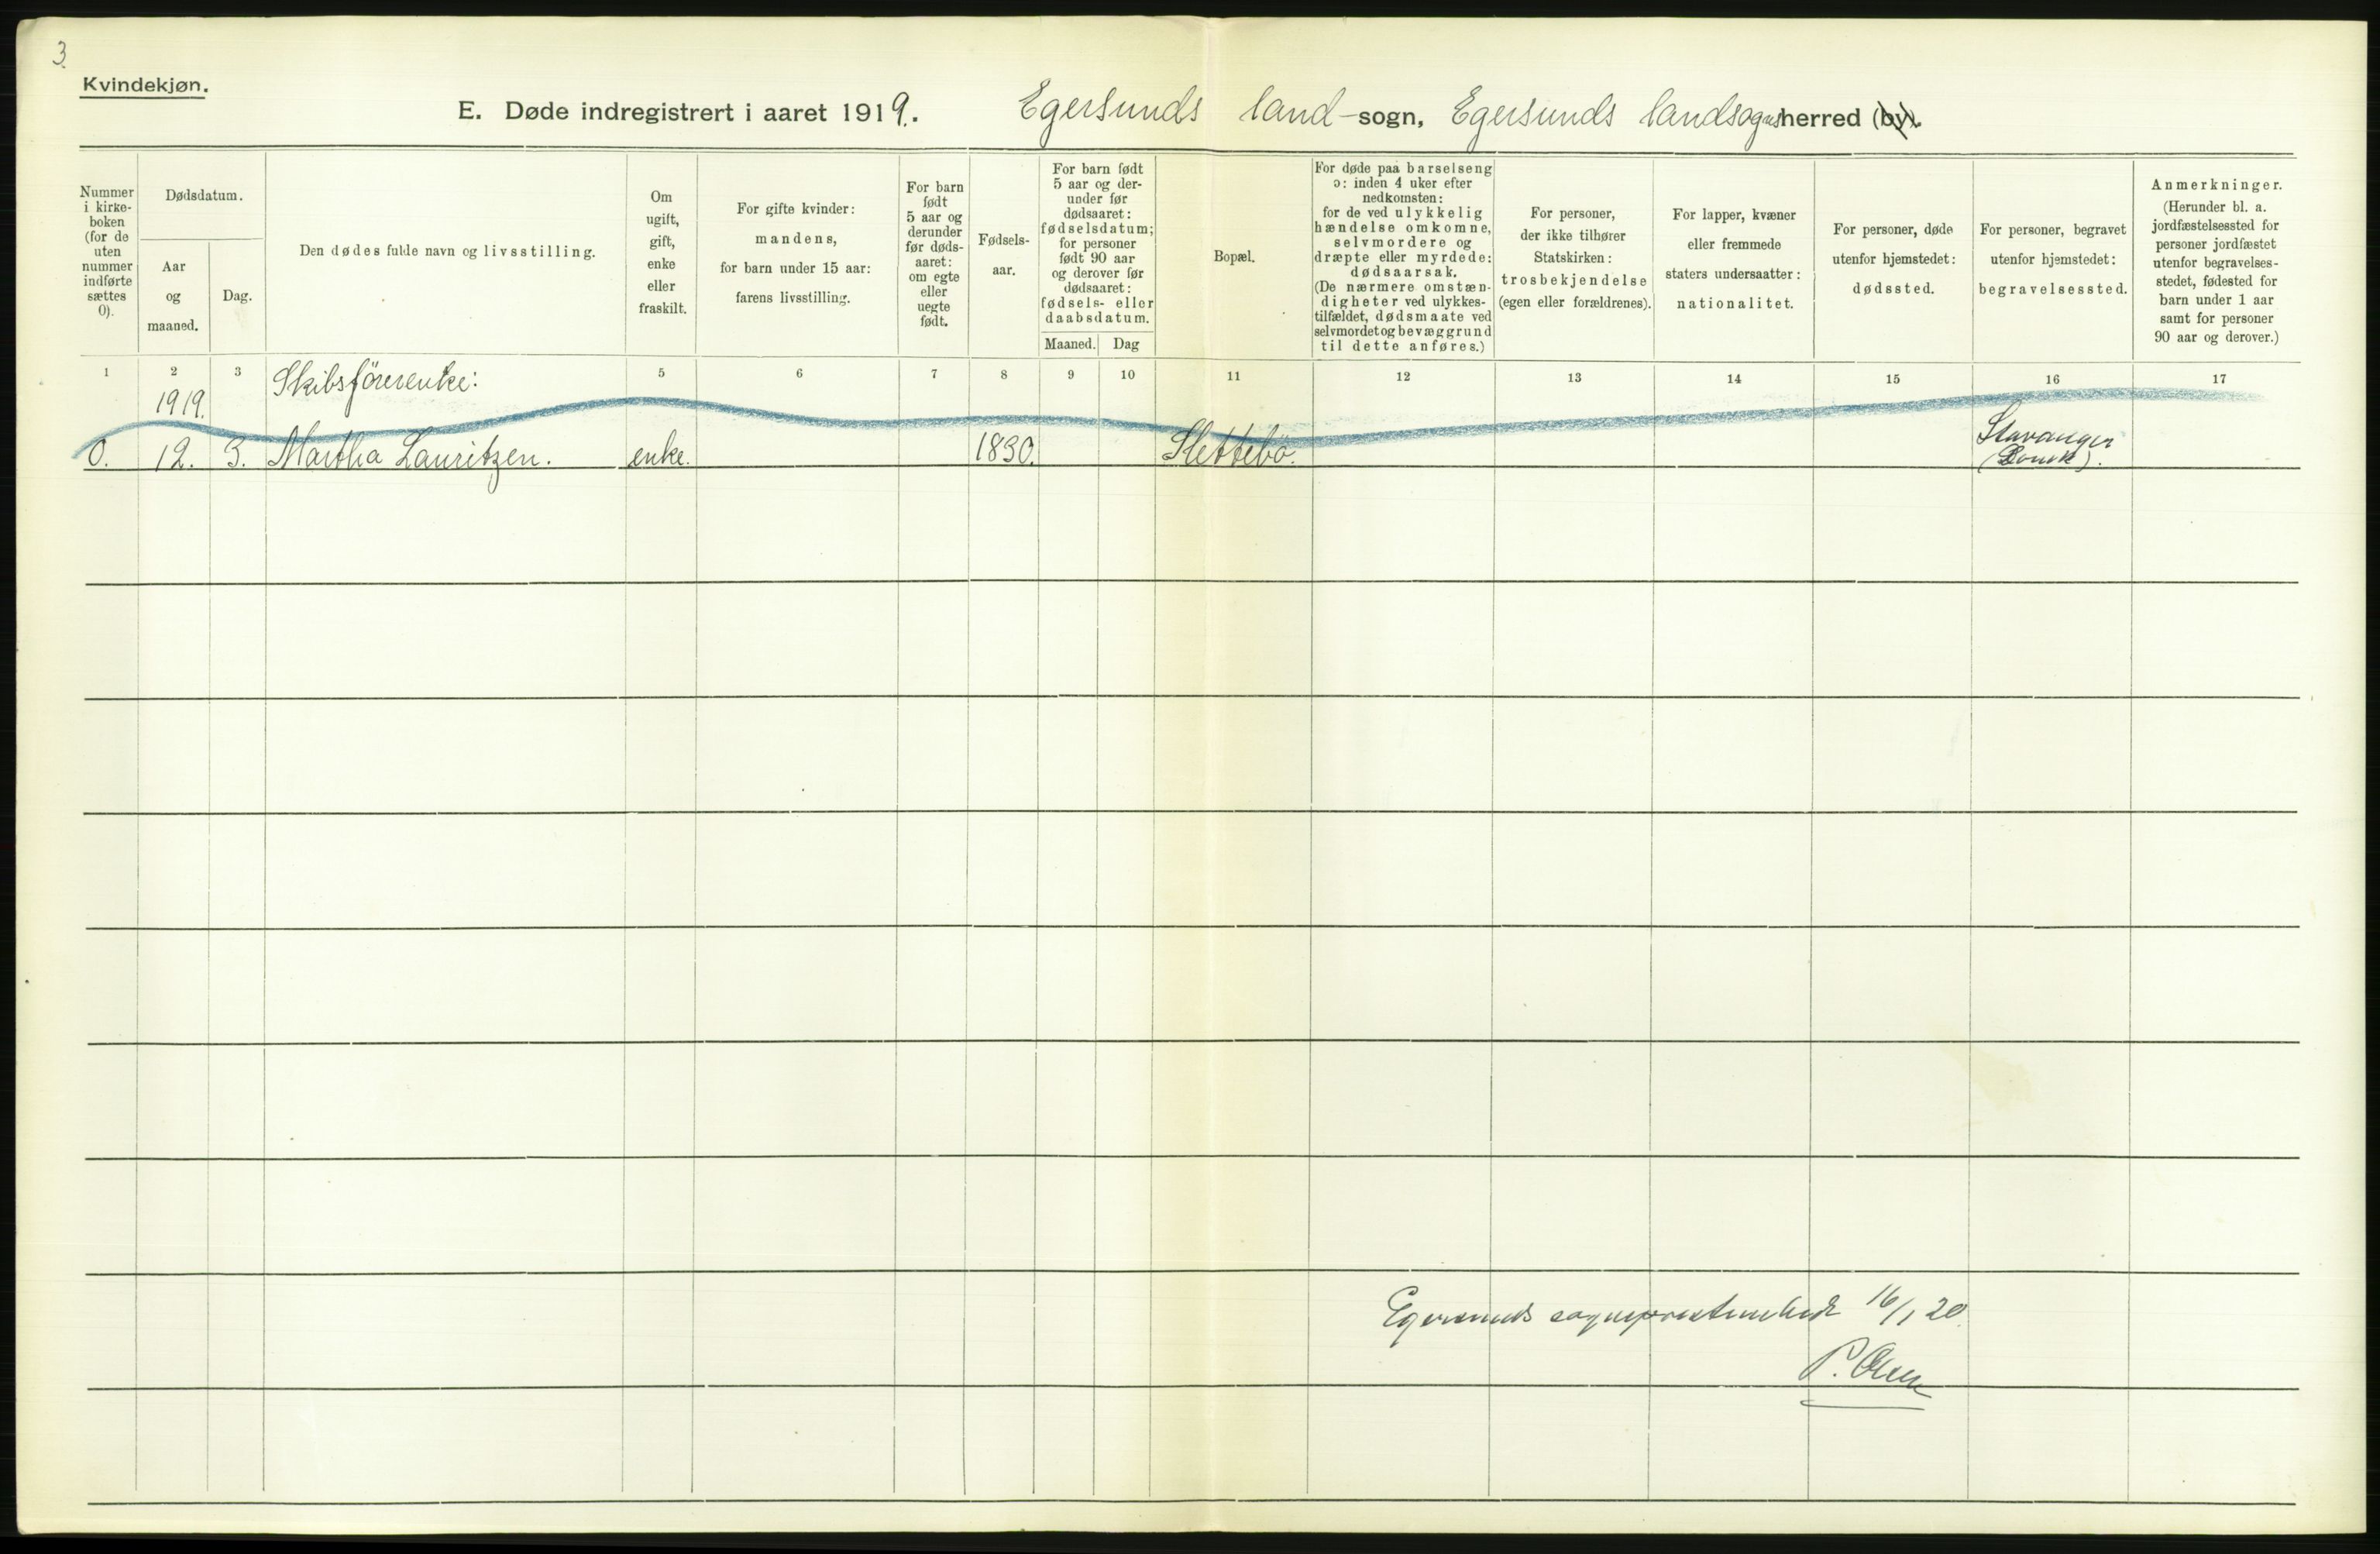 3.
Kvindekjøn.
E. Døde indregistrert i aaret 1919.
Egersunds land-sogn, Egersunds landsogns herred (by).
Nummer
i kirke-
boken
(for de
uten
nummer
indførte
sættes
0).
Dødsdatum.
Aar
og
maaned.
Dag.
Den dødes fulde navn og livsstilling.
Om
ugift,
gift,
enke
eller
fraskilt.
For gifte kvinder:
mandens,
for barn under 15 aar:
farens livsstilling.
For barn
født
5 aar og
derunder
før døds-
aaret:
om egte
eller
uegte
født.
Fødsels-
aar.
For barn født
5 aar og der-
under før
dødsaaret:
fødselsdatum;
for personer
født 90 aar
og derover før
dødsaaret:
fødsels- eller
daabsdatum.
Maaned. Dag
Bopæl.
For døde paa barselseng
ɔ: inden 4 uker efter
nedkomsten:
for de ved ulykkelig
hændelse omkomne,
selvmordere og
dræpte eller myrdede:
dødsaarsak.
(De nærmere omstæn-
digheter ved ulykkes-
tilfældet, dødsmaate ved
selvmordet og bevæggrund
til dette anføres.)
For personer,
der ikke tilhører
Statskirken:
trosbekjendelse
(egen eller forældrenes).
For lapper, kvæner
eller fremmede
staters undersaatter:
nationalitet.
For personer, døde
utenfor hjemstedet:
dødssted.
For personer, begravet
utenfor hjemstedet:
begravelsessted.
Anmerkninger.
(Herunder bl. a.
jordfæstelsessted for
personer jordfæstet
utenfor begravelses-
stedet, fødested for
barn under 1 aar
samt for personer
90 aar og derover.)
1 2 3 5 6 7 8 9 10 11 12 13 14 15 16 17
1919. Skibsförerenke:
0. 12. 3. Martha Lauritzen. enke. 1830. Slettebö. Stavanger
Egersunds sogneprestembede 16/1 20.
P. Olsen